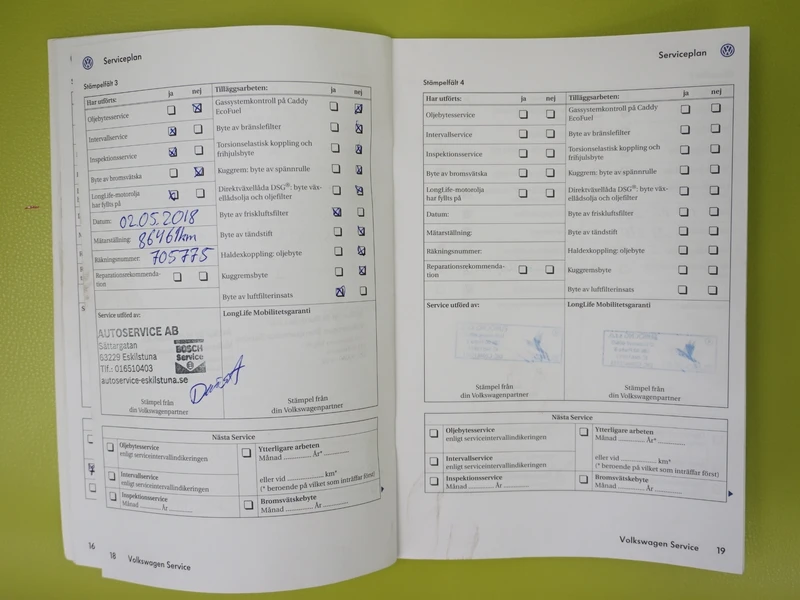 Serviceplan
Stämpelfält 3
Har utförts: ja nej
Oljebytesservice
Intervallservice
Inspektionsservice
Byte av bromsvätska
LongLife-motorolja
har fyllts på
Datum: 02.05.2018
Mätarställning: 86461km
Räkningsnummer: 705775
Reparationsrekommenda-
tion
Tilläggsarbeten: ja nej
Gassystemkontroll på Caddy
EcoFuel
Byte av bränslefilter
Torsionselastisk koppling och
frihjulsbyte
Kuggrem: byte av spännrulle
Direktväxellåda DSG®: byte väx-
ellådsolja och oljefilter
Byte av friskluftsfilter
Byte av tändstift
Haldexkoppling: oljebyte
Kuggremsbyte
Byte av luftfilterinsats
Service utförd av:
AUTOSERVICE AB
Såttargatan
63229 Eskilstuna
Tlf.: 016510403
autoservice-eskilstuna.se
BOSCH
Service
Stämpel från
din Volkswagenpartner
LongLife Mobilitetsgaranti
Stämpel från
din Volkswagenpartner
Nästa Service
Oljebytesservice
enligt serviceintervallindikeringen
Intervallservice
enligt serviceintervallindikeringen
Inspektionsservice
Månad ............ År ............
Ytterligare arbeten
Månad ............ År* ............
eller vid ............ km*
(* beroende på vilket som inträffar först)
Bromsvätskebyte
Månad ............ År ............
16
18 Volkswagen Service
Serviceplan
Stämpelfält 4
Har utförts: ja nej
Oljebytesservice
Intervallservice
Inspektionsservice
Byte av bromsvätska
LongLife-motorolja
har fyllts på
Datum:
Mätarställning:
Räkningsnummer:
Reparationsrekommenda-
tion
Tilläggsarbeten: ja nej
Gassystemkontroll på Caddy
EcoFuel
Byte av bränslefilter
Torsionselastisk koppling och
frihjulsbyte
Kuggrem: byte av spännrulle
Direktväxellåda DSG®: byte väx-
ellådsolja och oljefilter
Byte av friskluftsfilter
Byte av tändstift
Haldexkoppling: oljebyte
Kuggremsbyte
Byte av luftfilterinsats
Service utförd av:
Stämpel från
din Volkswagenpartner
LongLife Mobilitetsgaranti
Stämpel från
din Volkswagenpartner
Nästa Service
Oljebytesservice
enligt serviceintervallindikeringen
Intervallservice
enligt serviceintervallindikeringen
Inspektionsservice
Månad ............ År ............
Ytterligare arbeten
Månad ............ År* ............
eller vid ............ km*
(* beroende på vilket som inträffar först)
Bromsvätskebyte
Månad ............ År ............
Volkswagen Service 19